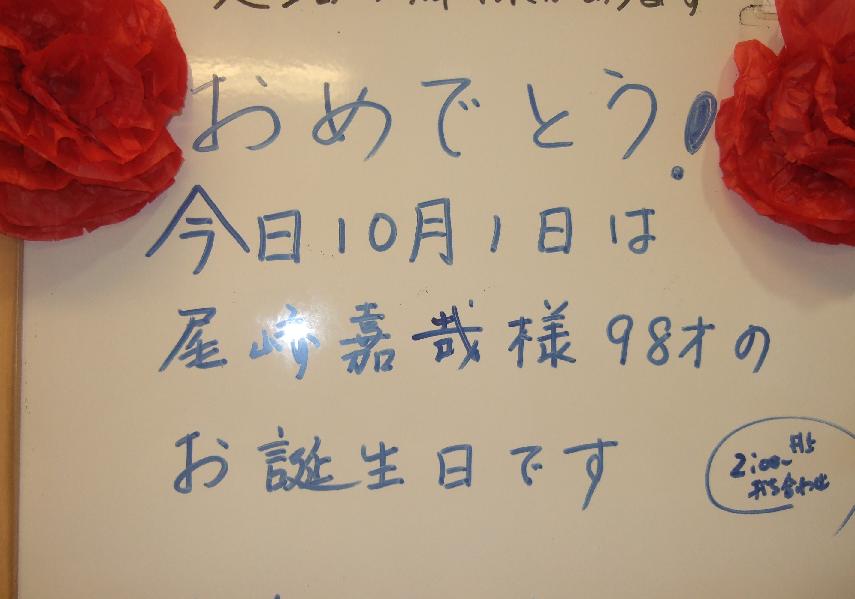 おめでとう!
今日10月1日は
尾崎嘉哉様98才の
お誕生日です
2:00~
打ち合わせ